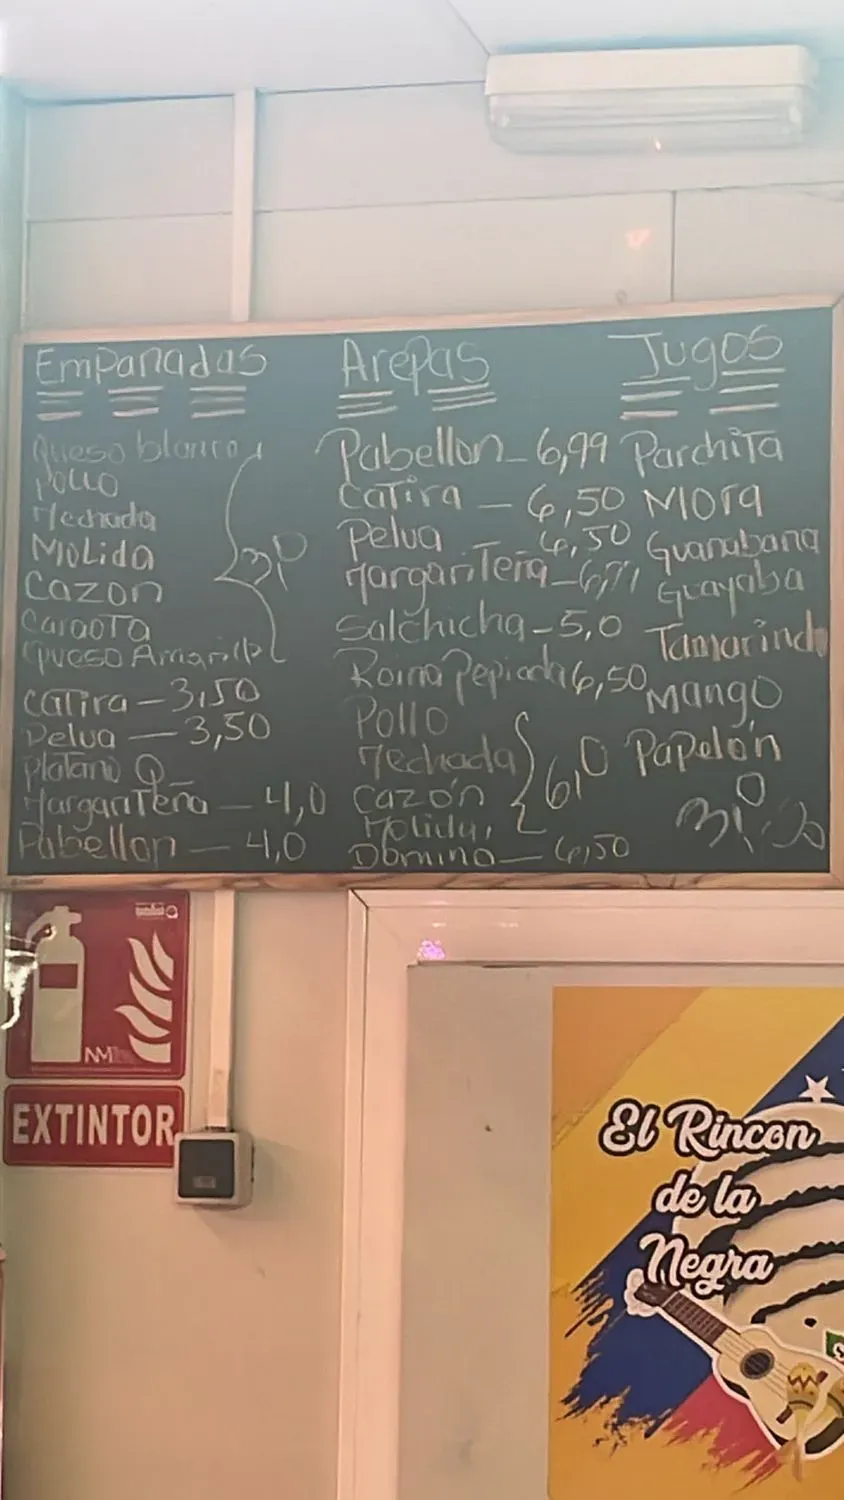 Empanadas
Queso blanco
Pollo
Mechada
Molida
Cazon
Caraota
Queso Amarillo
3,0
Catira — 3,50
Pelua — 3,50
Platano Q
Margariteña — 4,0
Pabellon — 4,0
Arepas
Pabellon — 6,99
Catira — 6,50
Pelua — 6,50
Margariteña —
Salchicha — 5,0
Reina Pepiada 6,50
Pollo
Mechada
Cazón
Molida
6,0
Domino — 6,50
Jugos
Parchita
Mora
Guanabana
Guayaba
Tamarindo
Mango
Papelón
EXTINTOR
El Rincon
de la
Negra